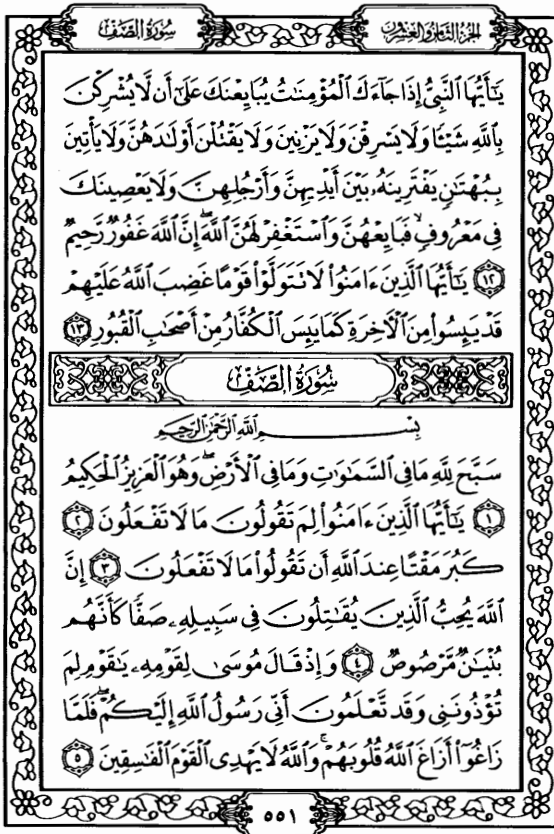 سُورَةُ الصَّفِّ
الجُزْءُ الثَّامِنُ وَالعِشْرُونَ
يَٰٓأَيُّهَا ٱلنَّبِيُّ إِذَا جَآءَكَ ٱلْمُؤْمِنَٰتُ يُبَايِعْنَكَ عَلَىٰٓ أَن لَّا يُشْرِكْنَ
بِٱللَّهِ شَيْـًٔا وَلَا يَسْرِقْنَ وَلَا يَزْنِينَ وَلَا يَقْتُلْنَ أَوْلَٰدَهُنَّ وَلَا يَأْتِينَ
بِبُهْتَٰنٍ يَفْتَرِينَهُۥ بَيْنَ أَيْدِيهِنَّ وَأَرْجُلِهِنَّ وَلَا يَعْصِينَكَ
فِى مَعْرُوفٍ ۙ فَبَايِعْهُنَّ وَٱسْتَغْفِرْ لَهُنَّ ٱللَّهَ ۖ إِنَّ ٱللَّهَ غَفُورٌ رَّحِيمٌ
١٢ يَٰٓأَيُّهَا ٱلَّذِينَ ءَامَنُوا۟ لَا تَتَوَلَّوْا۟ قَوْمًا غَضِبَ ٱللَّهُ عَلَيْهِمْ
قَدْ يَئِسُوا۟ مِنَ ٱلْءَاخِرَةِ كَمَا يَئِسَ ٱلْكُفَّارُ مِنْ أَصْحَٰبِ ٱلْقُبُورِ ١٣
سُورَةُ الصَّفِّ
بِسْمِ ٱللَّهِ ٱلرَّحْمَٰنِ ٱلرَّحِيمِ
سَبَّحَ لِلَّهِ مَا فِى ٱلسَّمَٰوَٰتِ وَمَا فِى ٱلْأَرْضِ ۖ وَهُوَ ٱلْعَزِيزُ ٱلْحَكِيمُ
١ يَٰٓأَيُّهَا ٱلَّذِينَ ءَامَنُوا۟ لِمَ تَقُولُونَ مَا لَا تَفْعَلُونَ ٢
كَبُرَ مَقْتًا عِندَ ٱللَّهِ أَن تَقُولُوا۟ مَا لَا تَفْعَلُونَ ٣ إِنَّ
ٱللَّهَ يُحِبُّ ٱلَّذِينَ يُقَٰتِلُونَ فِى سَبِيلِهِۦ صَفًّا كَأَنَّهُم
بُنْيَٰنٌ مَّرْصُوصٌ ٤ وَإِذْ قَالَ مُوسَىٰ لِقَوْمِهِۦ يَٰقَوْمِ لِمَ
تُؤْذُونَنِى وَقَد تَّعْلَمُونَ أَنِّى رَسُولُ ٱللَّهِ إِلَيْكُمْ ۖ فَلَمَّا
زَاغُوٓا۟ أَزَاغَ ٱللَّهُ قُلُوبَهُمْ ۚ وَٱللَّهُ لَا يَهْدِى ٱلْقَوْمَ ٱلْفَٰسِقِينَ ٥
٥٥١